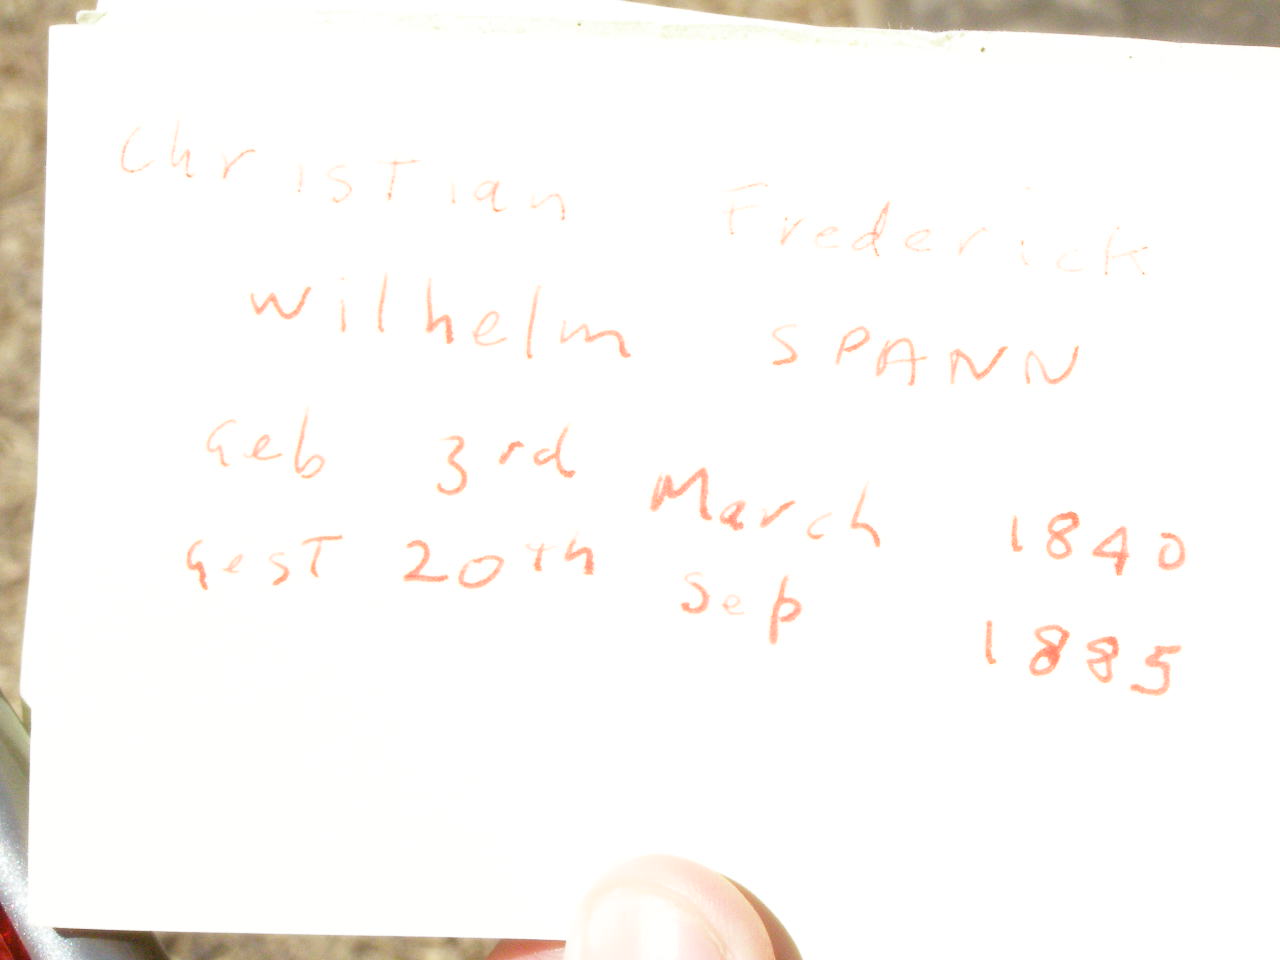 Christian Frederick
Wilhelm SPANN
Geb 3rd March 1840
Gest 20th Sep 1885